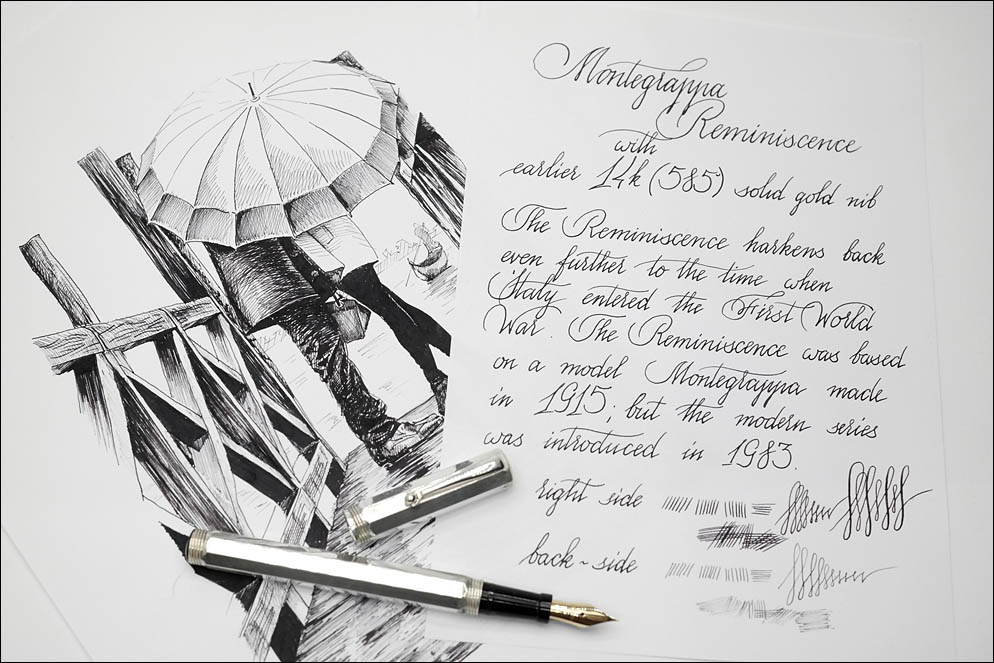 Montegrappa
Reminiscence
with
earlier 14k (585) solid gold nib
The Reminiscence harkens back
even further to the time when
Italy entered the First World
War. The Reminiscence was based
on a model Montegrappa made
in 1915, but the modern series
was introduced in 1983.
right side
back-side